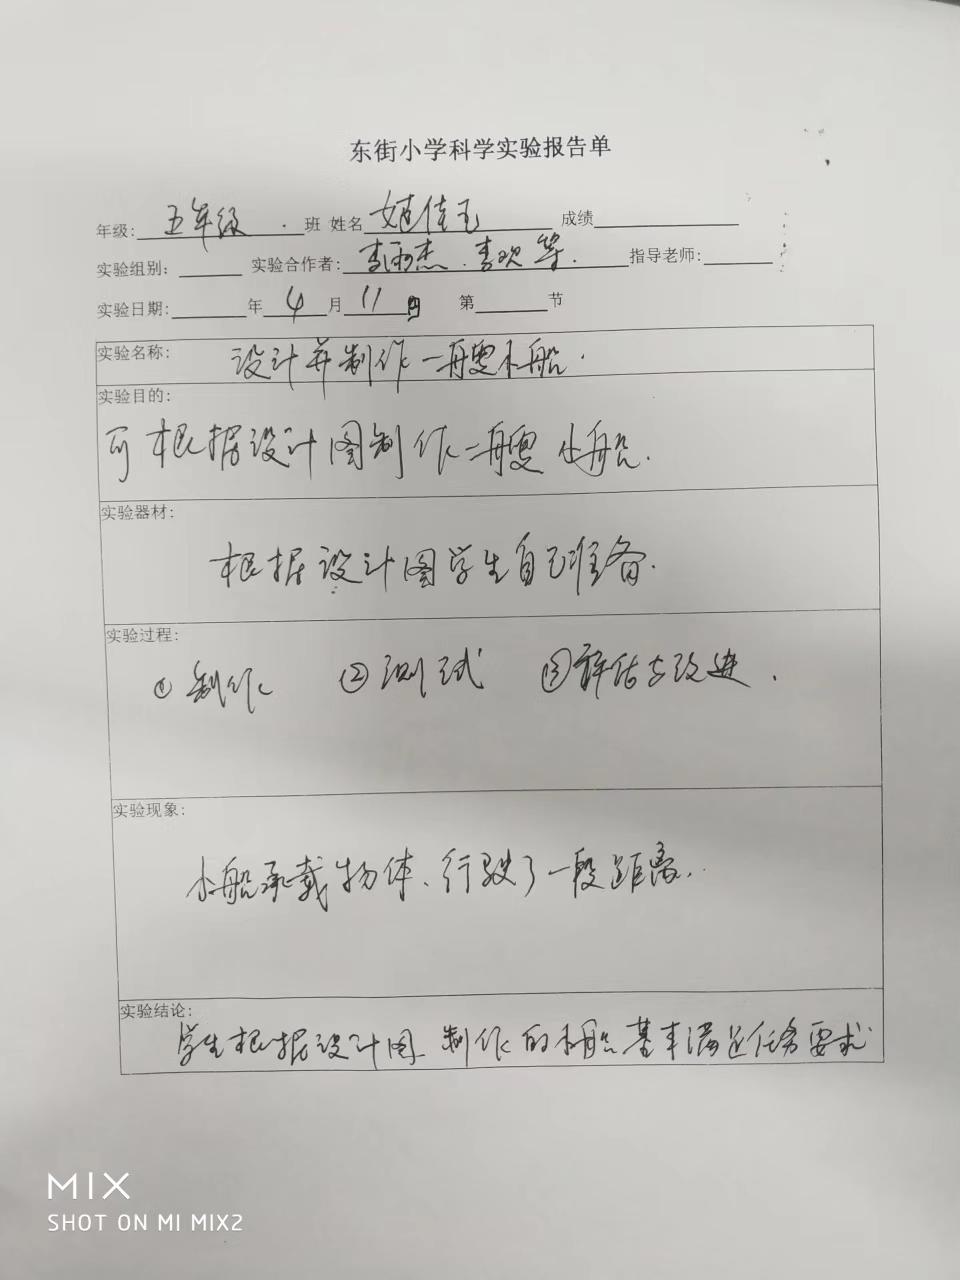 东街小学科学实验报告单
年级: 五年级 班 姓名 姬佳玉 成绩
实验组别: 实验合作者: 李雨杰.李欢等. 指导老师:
实验日期: 年 4 月 11 日 第 节
实验名称: 设计并制作一艘小船.
实验目的:
可根据设计图制作一艘小船.
实验器材:
根据设计图学生自己准备.
实验过程:
①制作 ②测试 ③评估与改进.
实验现象:
小船承载物体、行驶了一段距离.
实验结论:
学生根据设计图制作的小船基本满足任务要求
MIX
SHOT ON MI MIX2